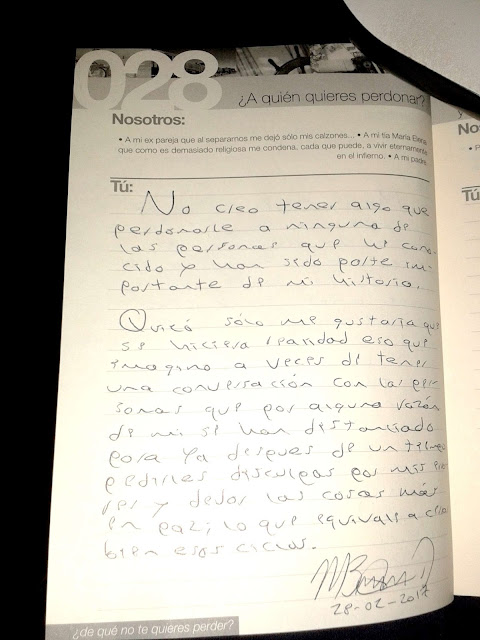 028
¿A quién quieres perdonar?
Nosotros:
• A mi ex pareja que al separarnos me dejó sólo mis calzones... • A mi tía María Elena
que como es demasiado religiosa me condena, cada que puede, a vivir eternamente
en el infierno. • A mi padre.
Tú:
No creo tener algo que
perdonarle a ninguna de
las personas que he cono-
cido y han sido parte im-
portante de mi historia.
Quizá sólo me gustaría que
se hiciera realidad eso que
imagino a veces de tener
una conversación con las per-
sonas que por alguna razón
de mi se han distanciado
para ya despues de un tiempo
pedirles disculpas por mis erro-
res y dejar las cosas más
en paz; lo que equivale a
bien esos ciclos.
28-02-2017
¿de qué no te quieres perder?
No
Tú